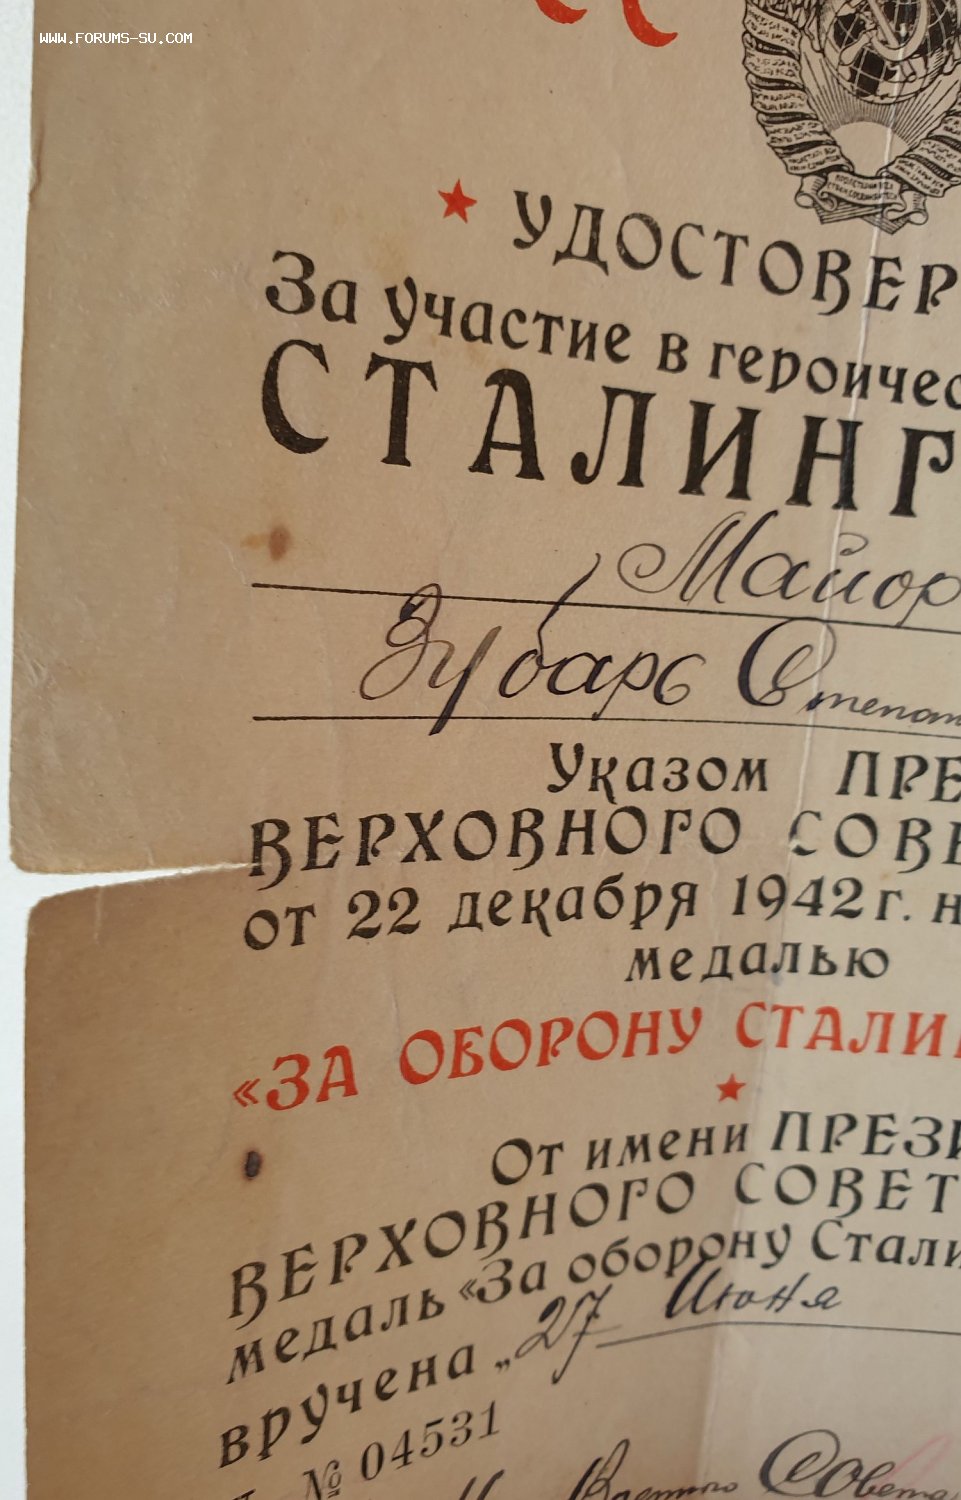 WWW.FORUMS-SU.COM
УДОСТОВЕР
За участие в героичес
СТАЛИНГ
Майор
Зубарь Степан
Указом ПРЕ
ВЕРХОВНОГО СОВЕ
от 22 декабря 1942 г. н
медалью
«ЗА ОБОРОНУ СТАЛИ
От имени ПРЕЗИ
ВЕРХОВНОГО СОВЕТ
медаль «За оборону Стали
вручена „27 Июня
№ 04531
Военного Совета